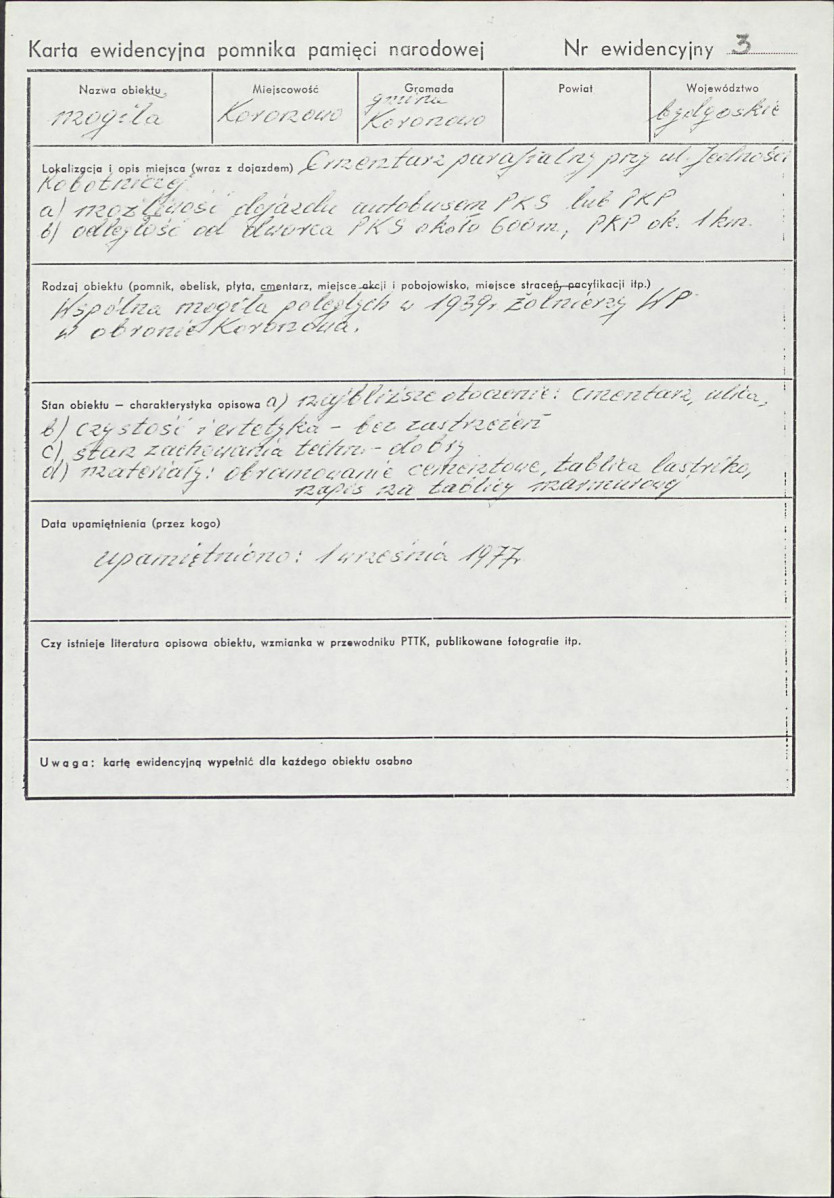 Karta ewidencyjna pomnika pamięci narodowej Nr ewidencyjny 3
Nazwa obiektu Miejscowość Gromada Powiat Województwo
mogiła Koronowo gmina Koronowo bydgoskie
Lokalizacja i opis miejsca (wraz z dojazdem) Cmentarz parafialny przy ul. Jedności
Robotniczej
a) możliwość dojazdu autobusem PKS lub PKP
b) odległość od dworca PKS około 600m, PKP ok. 1km.
Rodzaj obiektu (pomnik, obelisk, płyta, cmentarz, miejsce akcji i pobojowisko, miejsce straceń, pacyfikacji itp.)
Wspólna mogiła poległych w 1939r żołnierzy WP
w obronie Koronowa.
Stan obiektu – charakterystyka opisowa a) najbliższe otoczenie: cmentarz, ulica,
b) czystość i estetyka – bez zastrzeżeń
c) stan zachowania techn. – dobry
d) materiały: obramowanie cementowe, tablica lastriko,
napis na tablicy marmurowej
Data upamiętnienia (przez kogo)
upamiętniono: 1 września 1977r
Czy istnieje literatura opisowa obiektu, wzmianka w przewodniku PTTK, publikowane fotografie itp.
Uwaga: kartę ewidencyjną wypełnić dla każdego obiektu osobno